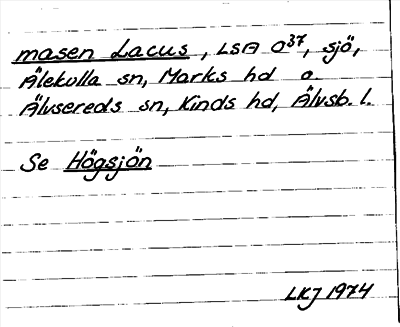 masen Lacus, LSA O37, sjö,
Älekulla sn, Marks hd o.
Älvsereds sn, Kinds hd, Älvsb. l.
Se Högsjön
LKJ 1974